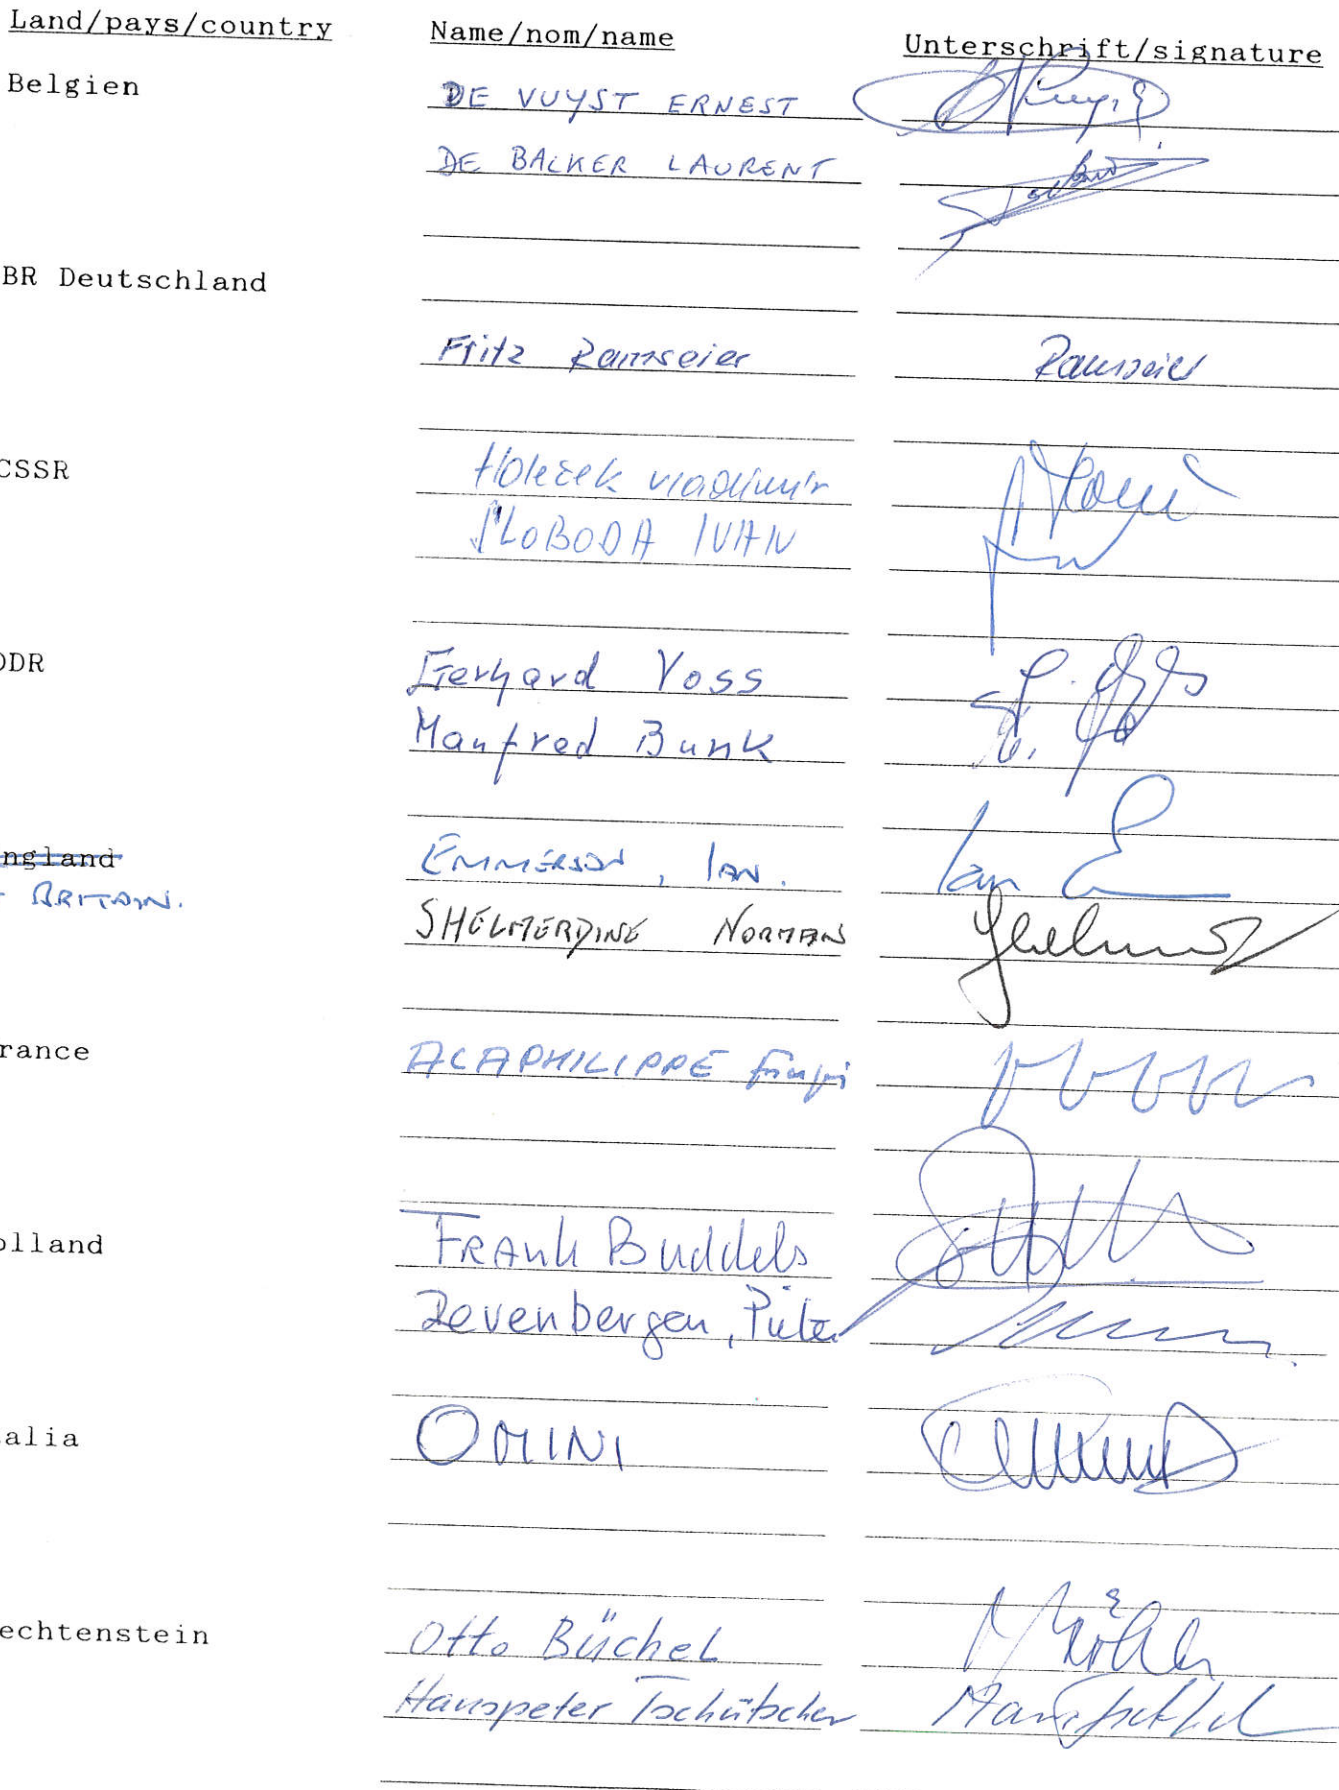 Land/pays/country Name/nom/name Unterschrift/signature
Belgien DE VUYST ERNEST
DE BACKER LAURENT
BR Deutschland
Fritz Ramseier Ramseier
CSSR Holeček Vladimír
SLOBODA IVAN
DDR Gerhard Voss
Manfred Bunk
ngland EMMERSON, IAN. Ian E
BRITAIN. SHELMERDINE NORMAN
rance ALAPHILIPPE
olland FRANK Buddels
Revenbergen, Pieter
talia OMINI
echtenstein Otto Büchel
Hanspeter Tschütscher